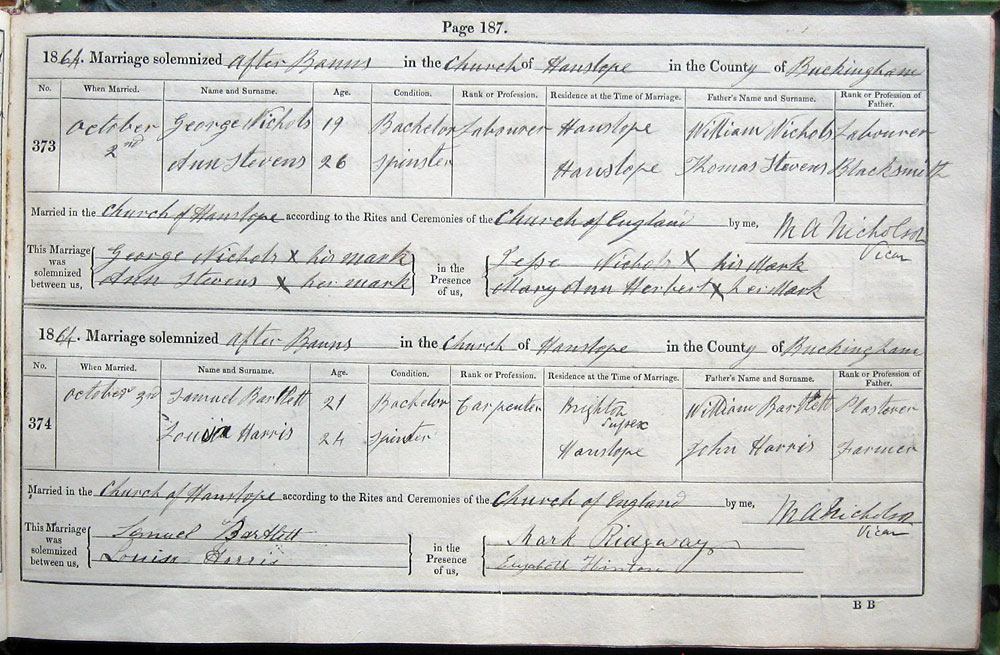 Page 187.
1864. Marriage solemnized after Banns in the Church of Hanslope in the County of Buckingham
No. When Married. Name and Surname. Age. Condition. Rank or Profession. Residence at the Time of Marriage. Father's Name and Surname. Rank or Profession of Father.
373 October 2nd George Nichols 19 Bachelor Labourer Hanslope William Nichols Labourer
Ann Stevens 26 Spinster Hanslope Thomas Stevens Blacksmith
Married in the Church of Hanslope according to the Rites and Ceremonies of the Church of England by me, M A Nicholson
Vicar
This Marriage was solemnized between us, George Nichols X his mark in the Presence of us, Jesse Nichols X his Mark
Ann Stevens X her mark Mary Ann Herbert X her Mark
1864. Marriage solemnized after Banns in the Church of Hanslope in the County of Buckingham
No. When Married. Name and Surname. Age. Condition. Rank or Profession. Residence at the Time of Marriage. Father's Name and Surname. Rank or Profession of Father.
374 October 3rd Samuel Bartlett 21 Bachelor Carpenter Brighton Sussex William Bartlett Plasterer
Louisa Harris 24 Spinster Hanslope John Harris Farmer
Married in the Church of Hanslope according to the Rites and Ceremonies of the Church of England by me, M A Nicholson
Vicar
This Marriage was solemnized between us, Samuel Bartlett in the Presence of us, Mark Ridgway
Louisa Harris Elizabeth Hinton
B B